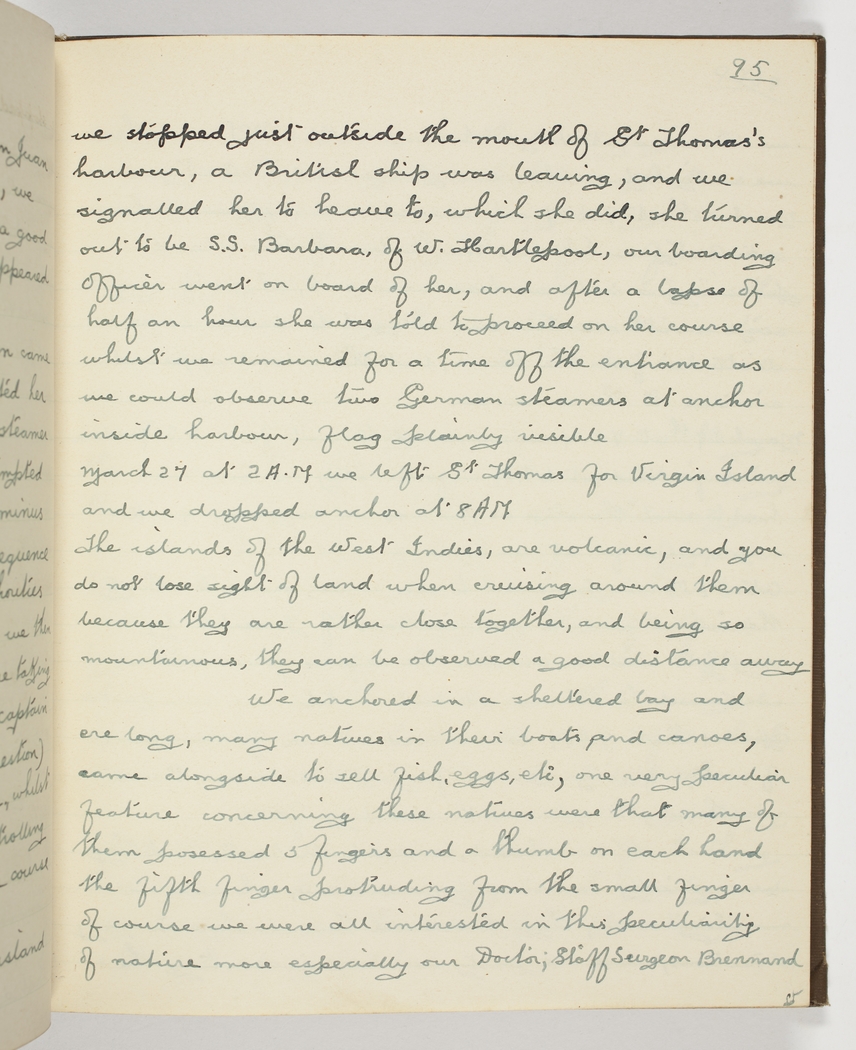 95
we stopped just outside the mouth of St Thomas's
harbour, a British ship was leaving, and we
signalled her to heave to, which she did, she turned
out to be S.S. Barbara, of W. Hartlepool, our boarding
officer went on board of her, and after a lapse of
half an hour she was told to proceed on her course
whilst we remained for a time off the entrance as
we could observe two German steamers at anchor
inside harbour, flag plainly visible
March 27 at 2 A.M we left St Thomas for Virgin Island
and we dropped anchor at 8 AM
The islands of the West Indies, are volcanic, and you
do not lose sight of land when cruising around them
because they are rather close together, and being so
mountainous, they can be observed a good distance away
We anchored in a sheltered bay and
ere long, many natives in their boats and canoes,
came alongside to sell fish, eggs, etc, one very peculiar
feature concerning these natives were that many of
them posessed 5 fingers and a thumb on each hand
the fifth finger protruding from the small finger
of course we were all interested in this peculiarity
of nature more especially our Doctor; Staff Surgeon Brennand
n Juan
, we
a good
ppeared
n came
ted her
steamer
mpted
minus
equence
horities
we the
e taking
captain
estion)
, whilst
trolling
course
island